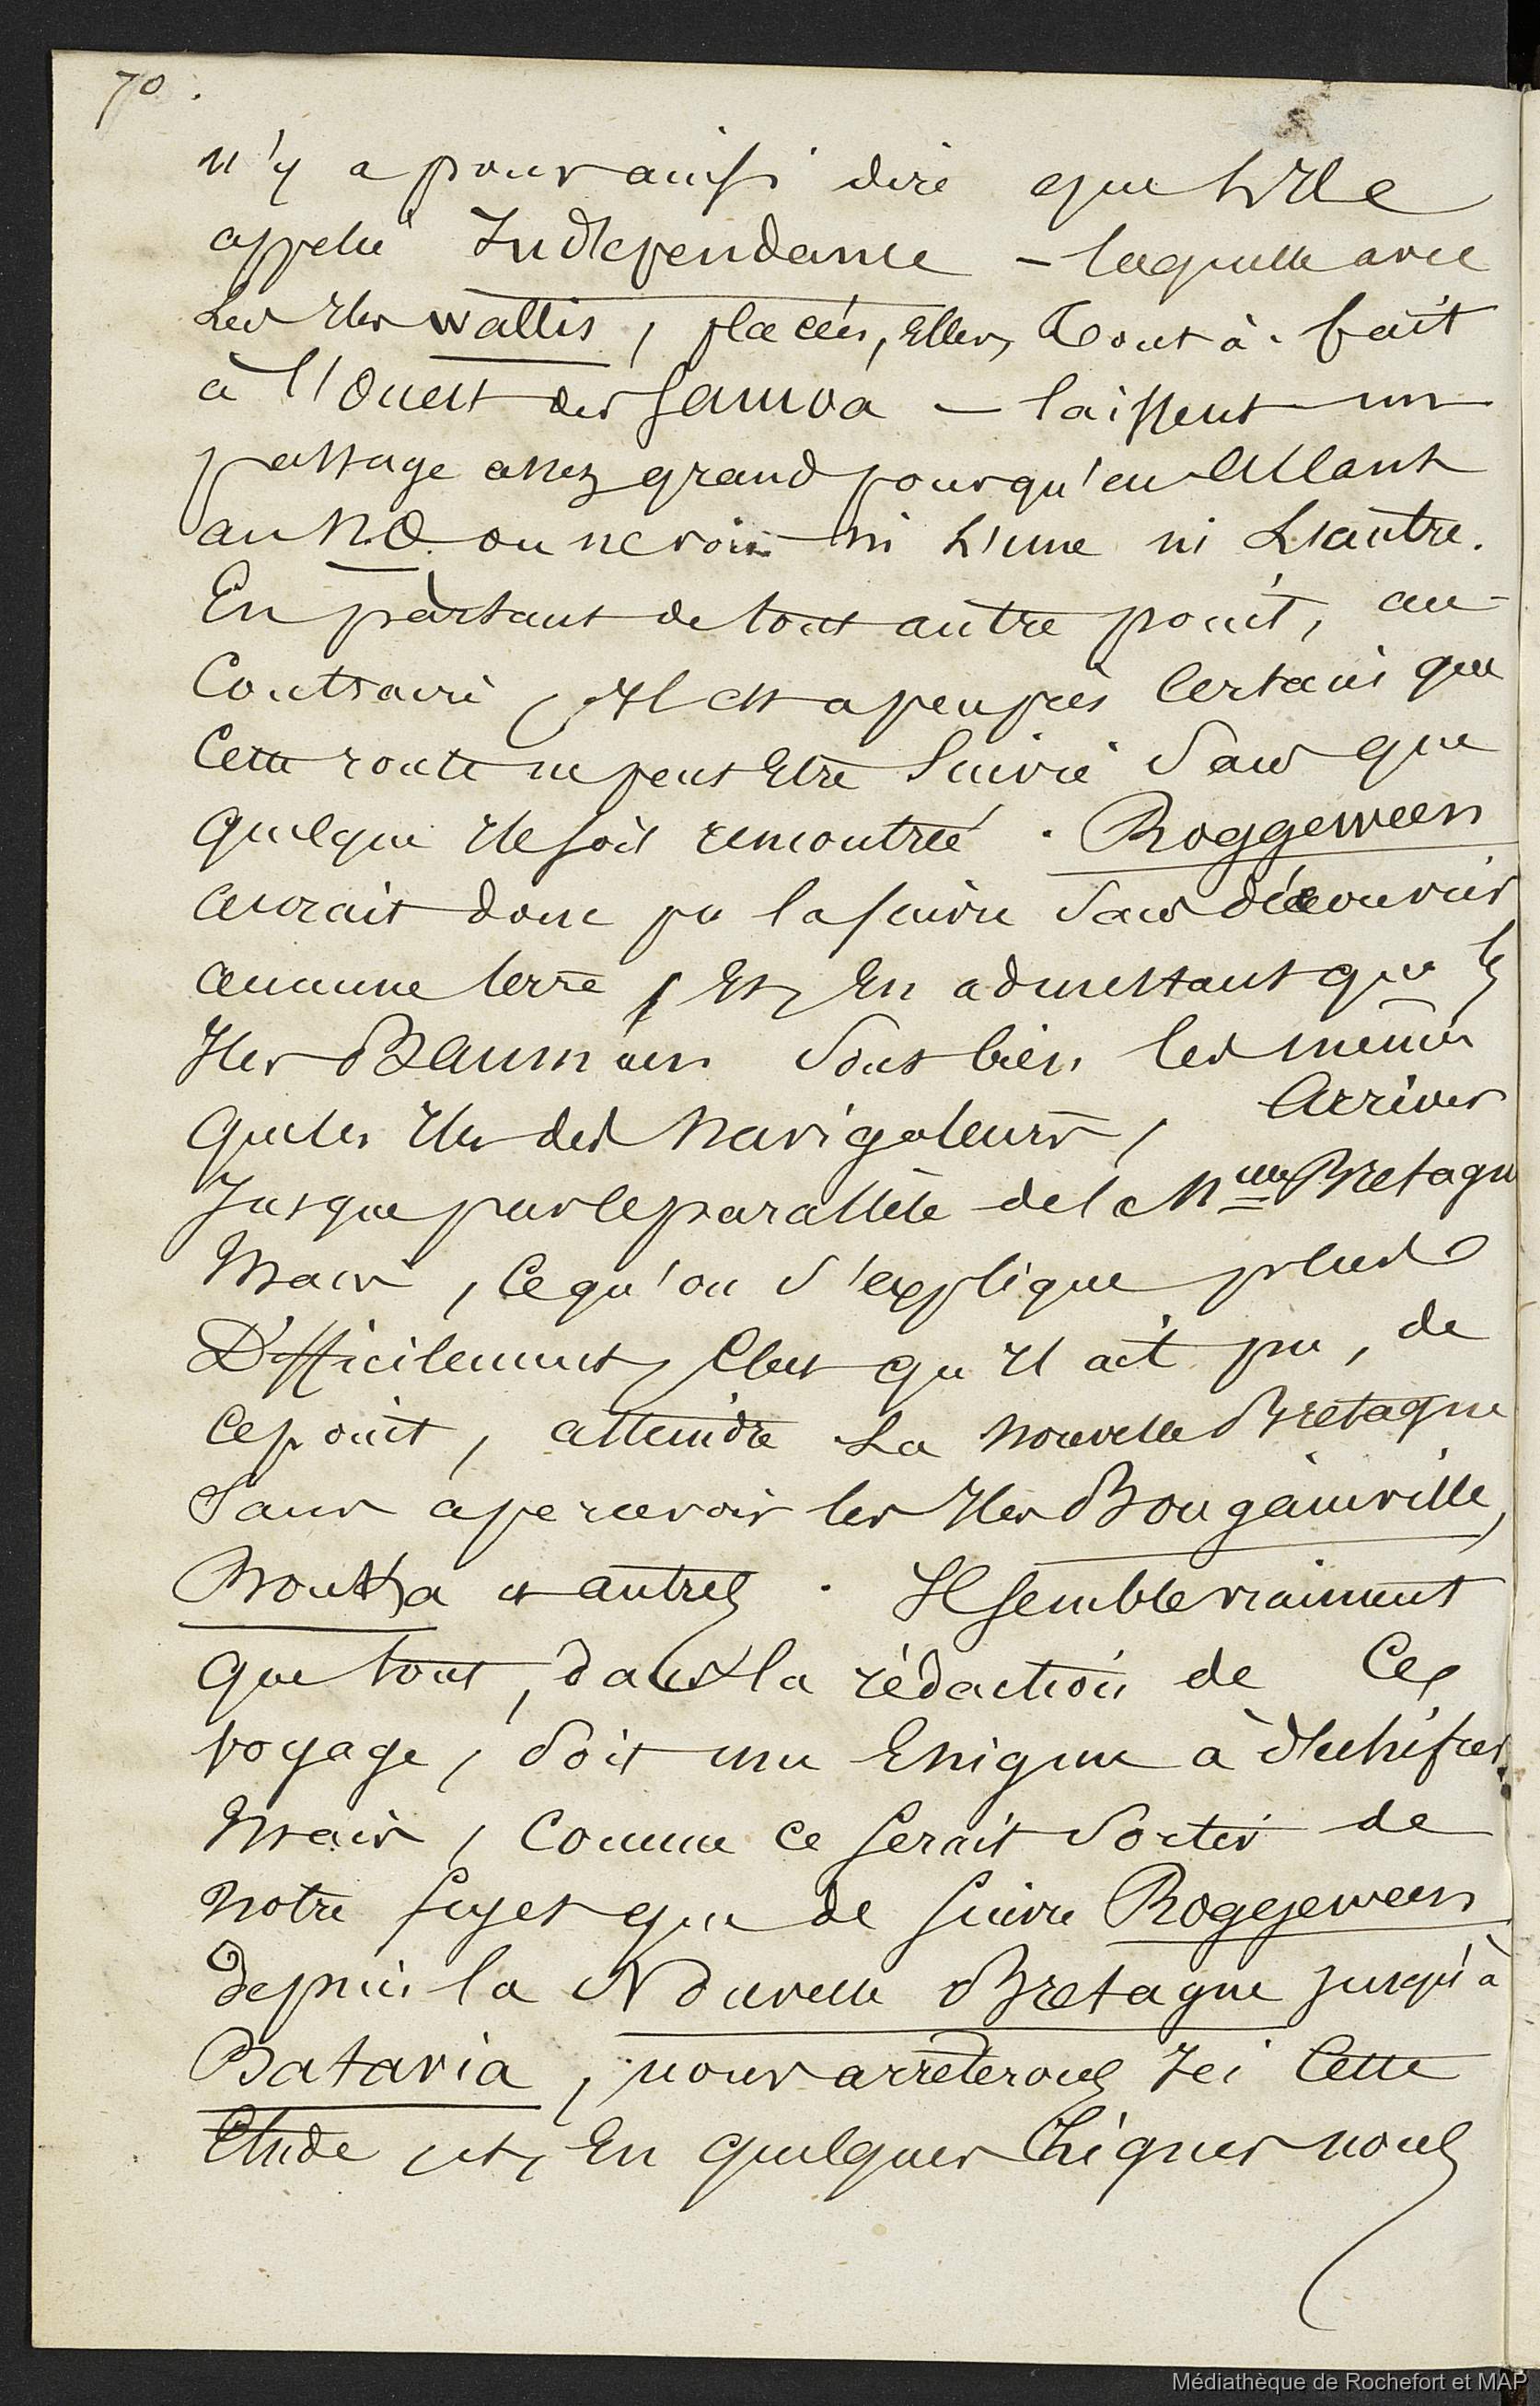 70.
n'y a pour ainsi dire que l'Ile
appelée Indépendance – laquelle avec
Les Iles Wallis, placées, Elles, Tout à fait
à l'Ouest des Samoa – laissent un
passage assez grand pour qu'en Allant
au N.O. on ne voie ni L'une ni L'autre.
En partant de tout autre point, au
Contraire, Il est à peu près Certain que
Cette route ne peut Etre Suivie Sans que
quelque Ile soit rencontrée. Roggeween
aurait donc pu la suivre Sans découvrir
aucune terre, Et, En admettant que les
Iles Bauman Sont bien les mêmes
que les Iles des Navigateurs, Arriver
Jusque par le parallèle de la Nlle Bretagne
Mais, Ce qu'on s'explique plus
Difficilement, C'est qu'Il ait pu, de
Ce point, atteindre La Nouvelle Bretagne
Sans apercevoir les Iles Bougainville,
Boukha et autres. Il semble vraiment
que tout, dans la rédaction de Ce
voyage, Soit une Enigme à déchiffrer.
Mais, Comme Ce Serait Sortir de
Notre Sujet que de Suivre Roggeween
depuis la Nouvelle Bretagne jusqu'à
Batavia, nous arrêterons Ici Cette
Etude et, En quelques Lignes nous
Médiathèque de Rochefort et MAP